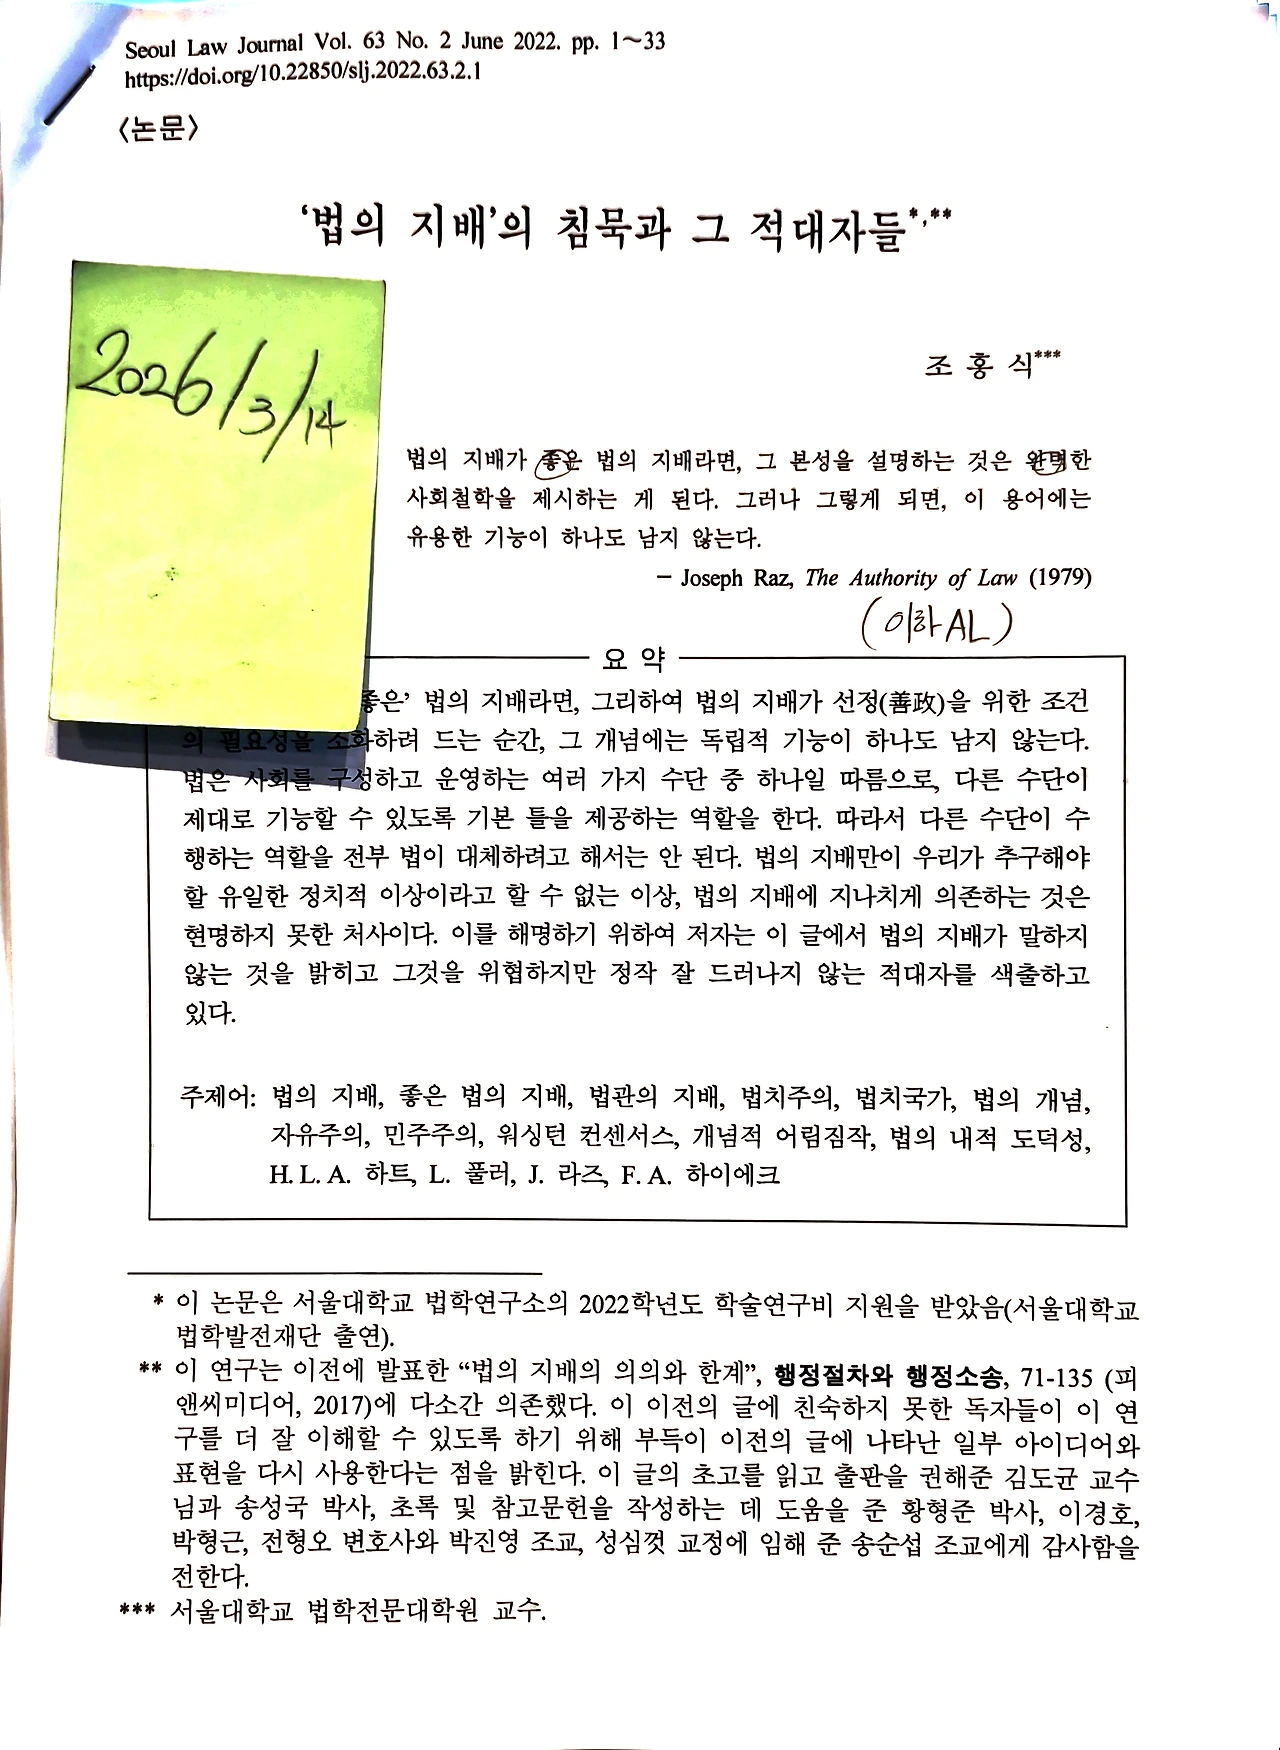 Seoul Law Journal Vol. 63 No. 2 June 2022. pp. 1~33
https://doi.org/10.22850/slj.2022.63.2.1
〈논문〉
‘법의 지배’의 침묵과 그 적대자들*,**
2026/3/14
조 홍 식***
법의 지배가 좋은 법의 지배라면, 그 본성을 설명하는 것은 완벽한
사회철학을 제시하는 게 된다. 그러나 그렇게 되면, 이 용어에는
유용한 기능이 하나도 남지 않는다.
– Joseph Raz, The Authority of Law (1979)
(이하 AL)
요 약
좋은’ 법의 지배라면, 그리하여 법의 지배가 선정(善政)을 위한 조건
의 필요성을 소화하려 드는 순간, 그 개념에는 독립적 기능이 하나도 남지 않는다.
법은 사회를 구성하고 운영하는 여러 가지 수단 중 하나일 따름으로, 다른 수단이
제대로 기능할 수 있도록 기본 틀을 제공하는 역할을 한다. 따라서 다른 수단이 수
행하는 역할을 전부 법이 대체하려고 해서는 안 된다. 법의 지배만이 우리가 추구해야
할 유일한 정치적 이상이라고 할 수 없는 이상, 법의 지배에 지나치게 의존하는 것은
현명하지 못한 처사이다. 이를 해명하기 위하여 저자는 이 글에서 법의 지배가 말하지
않는 것을 밝히고 그것을 위협하지만 정작 잘 드러나지 않는 적대자를 색출하고
있다.
주제어: 법의 지배, 좋은 법의 지배, 법관의 지배, 법치주의, 법치국가, 법의 개념,
자유주의, 민주주의, 워싱턴 컨센서스, 개념적 어림짐작, 법의 내적 도덕성,
H. L. A. 하트, L. 풀러, J. 라즈, F. A. 하이에크
* 이 논문은 서울대학교 법학연구소의 2022학년도 학술연구비 지원을 받았음(서울대학교
법학발전재단 출연).
** 이 연구는 이전에 발표한 “법의 지배의 의의와 한계”, 행정절차와 행정소송, 71-135 (피
앤씨미디어, 2017)에 다소간 의존했다. 이 이전의 글에 친숙하지 못한 독자들이 이 연
구를 더 잘 이해할 수 있도록 하기 위해 부득이 이전의 글에 나타난 일부 아이디어와
표현을 다시 사용한다는 점을 밝힌다. 이 글의 초고를 읽고 출판을 권해준 김도균 교수
님과 송성국 박사, 초록 및 참고문헌을 작성하는 데 도움을 준 황형준 박사, 이경호,
박형근, 전형오 변호사와 박진영 조교, 성심껏 교정에 임해 준 송순섭 조교에게 감사함을
전한다.
*** 서울대학교 법학전문대학원 교수.